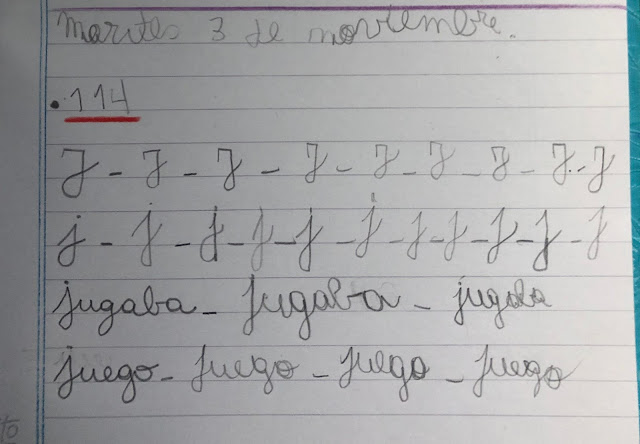 Martes 3 de noviembre.
• 114
J - J - J - J - J - J - J - J - J
j - j - j - j - j - j - j - j - j - j - j
jugaba - jugaba - jugaba
juego - juego - juego - juego